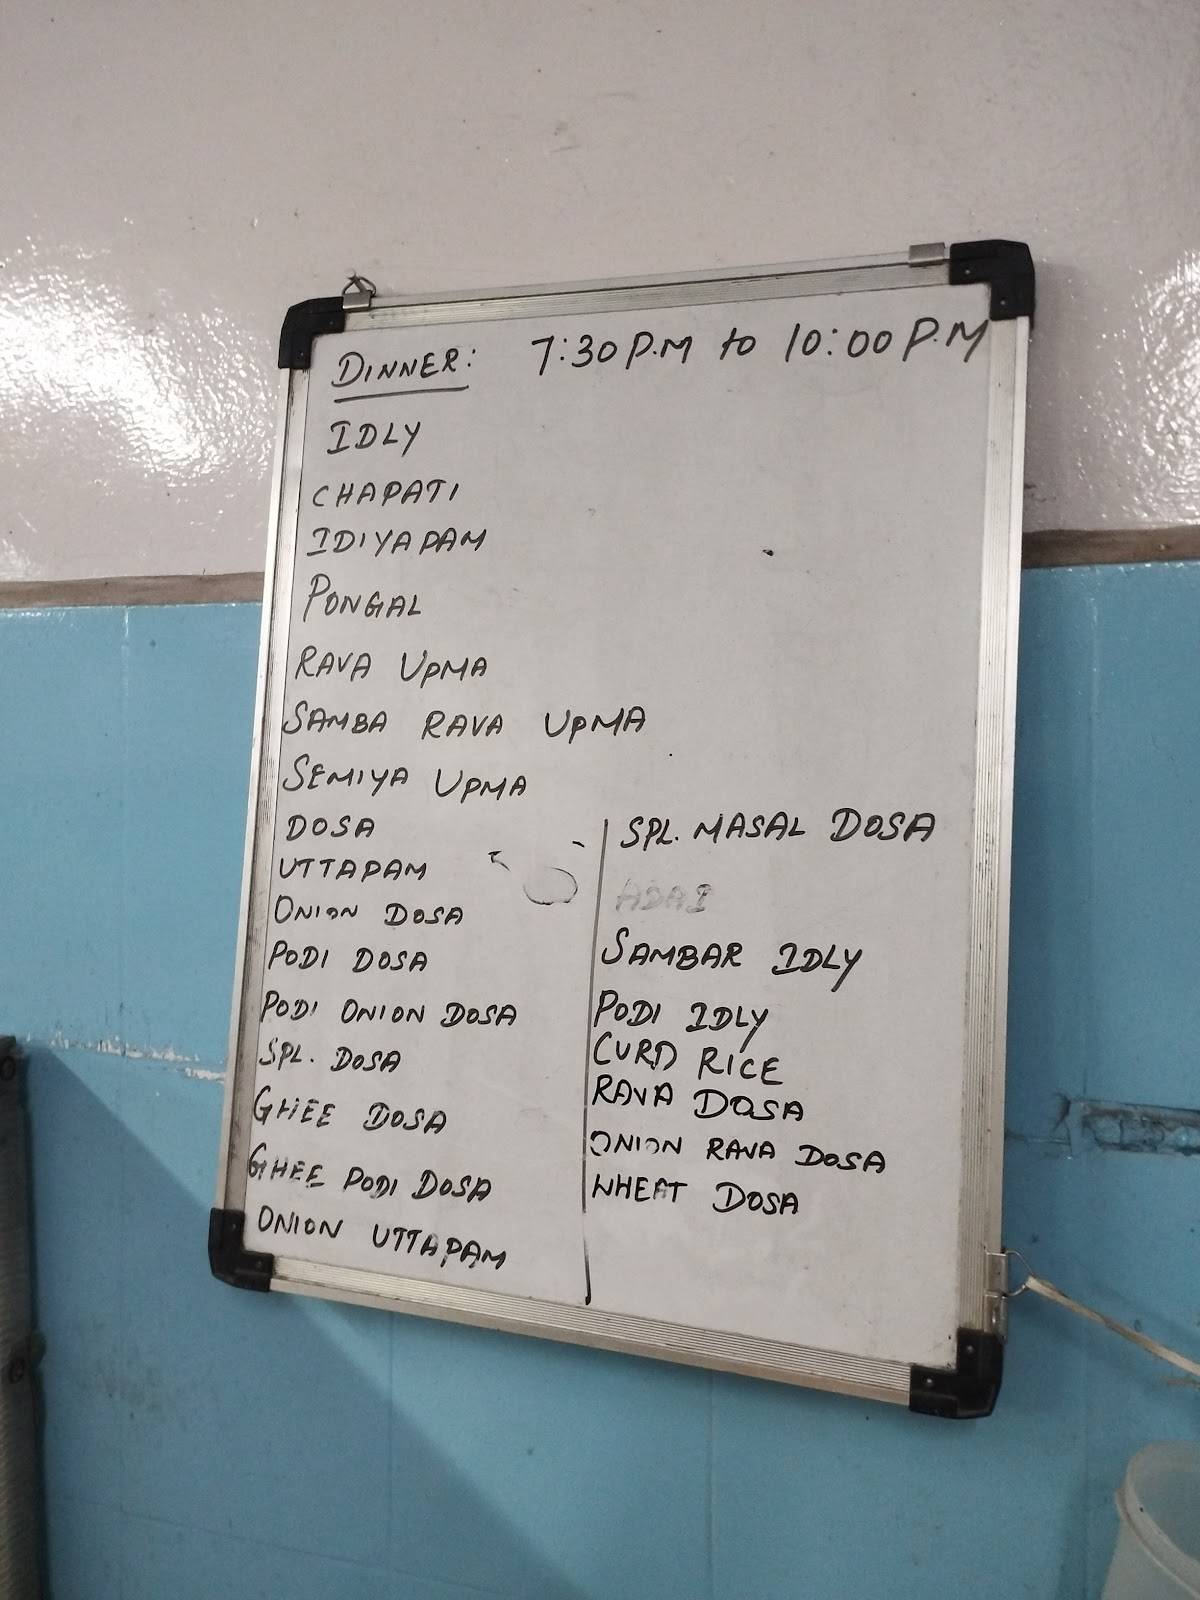 DINNER: 7:30 P.M to 10:00 P.M
IDLY
CHAPATI
IDIYAPAM
PONGAL
RAVA UPMA
SAMBA RAVA UPMA
SEMIYA UPMA
DOSA
UTTAPAM
ONION DOSA
PODI DOSA
PODI ONION DOSA
SPL. DOSA
GHEE DOSA
GHEE PODI DOSA
ONION UTTAPAM
SPL. MASAL DOSA
ADAI
SAMBAR IDLY
PODI IDLY
CURD RICE
RAVA DOSA
ONION RAVA DOSA
WHEAT DOSA